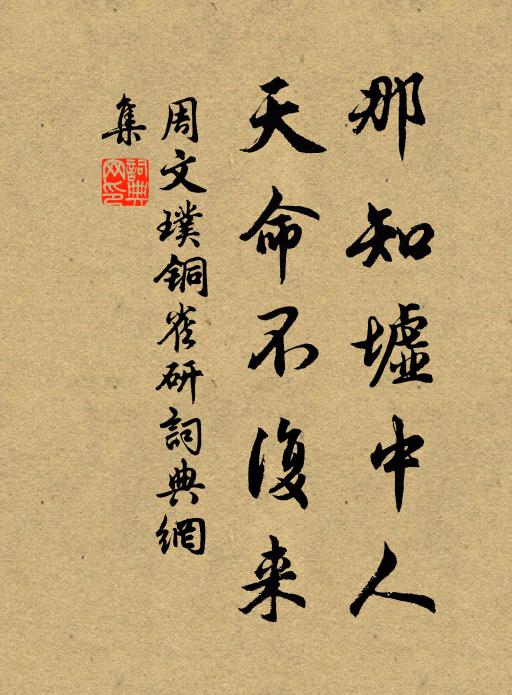 那知墟中人
天命不復来
周文璞銅雀研詞典網
集
詞典
网印